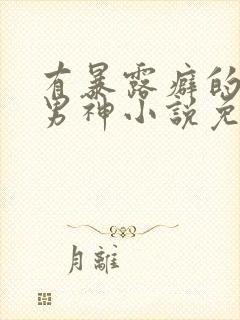 有暴露癖的
男神小說免
月離